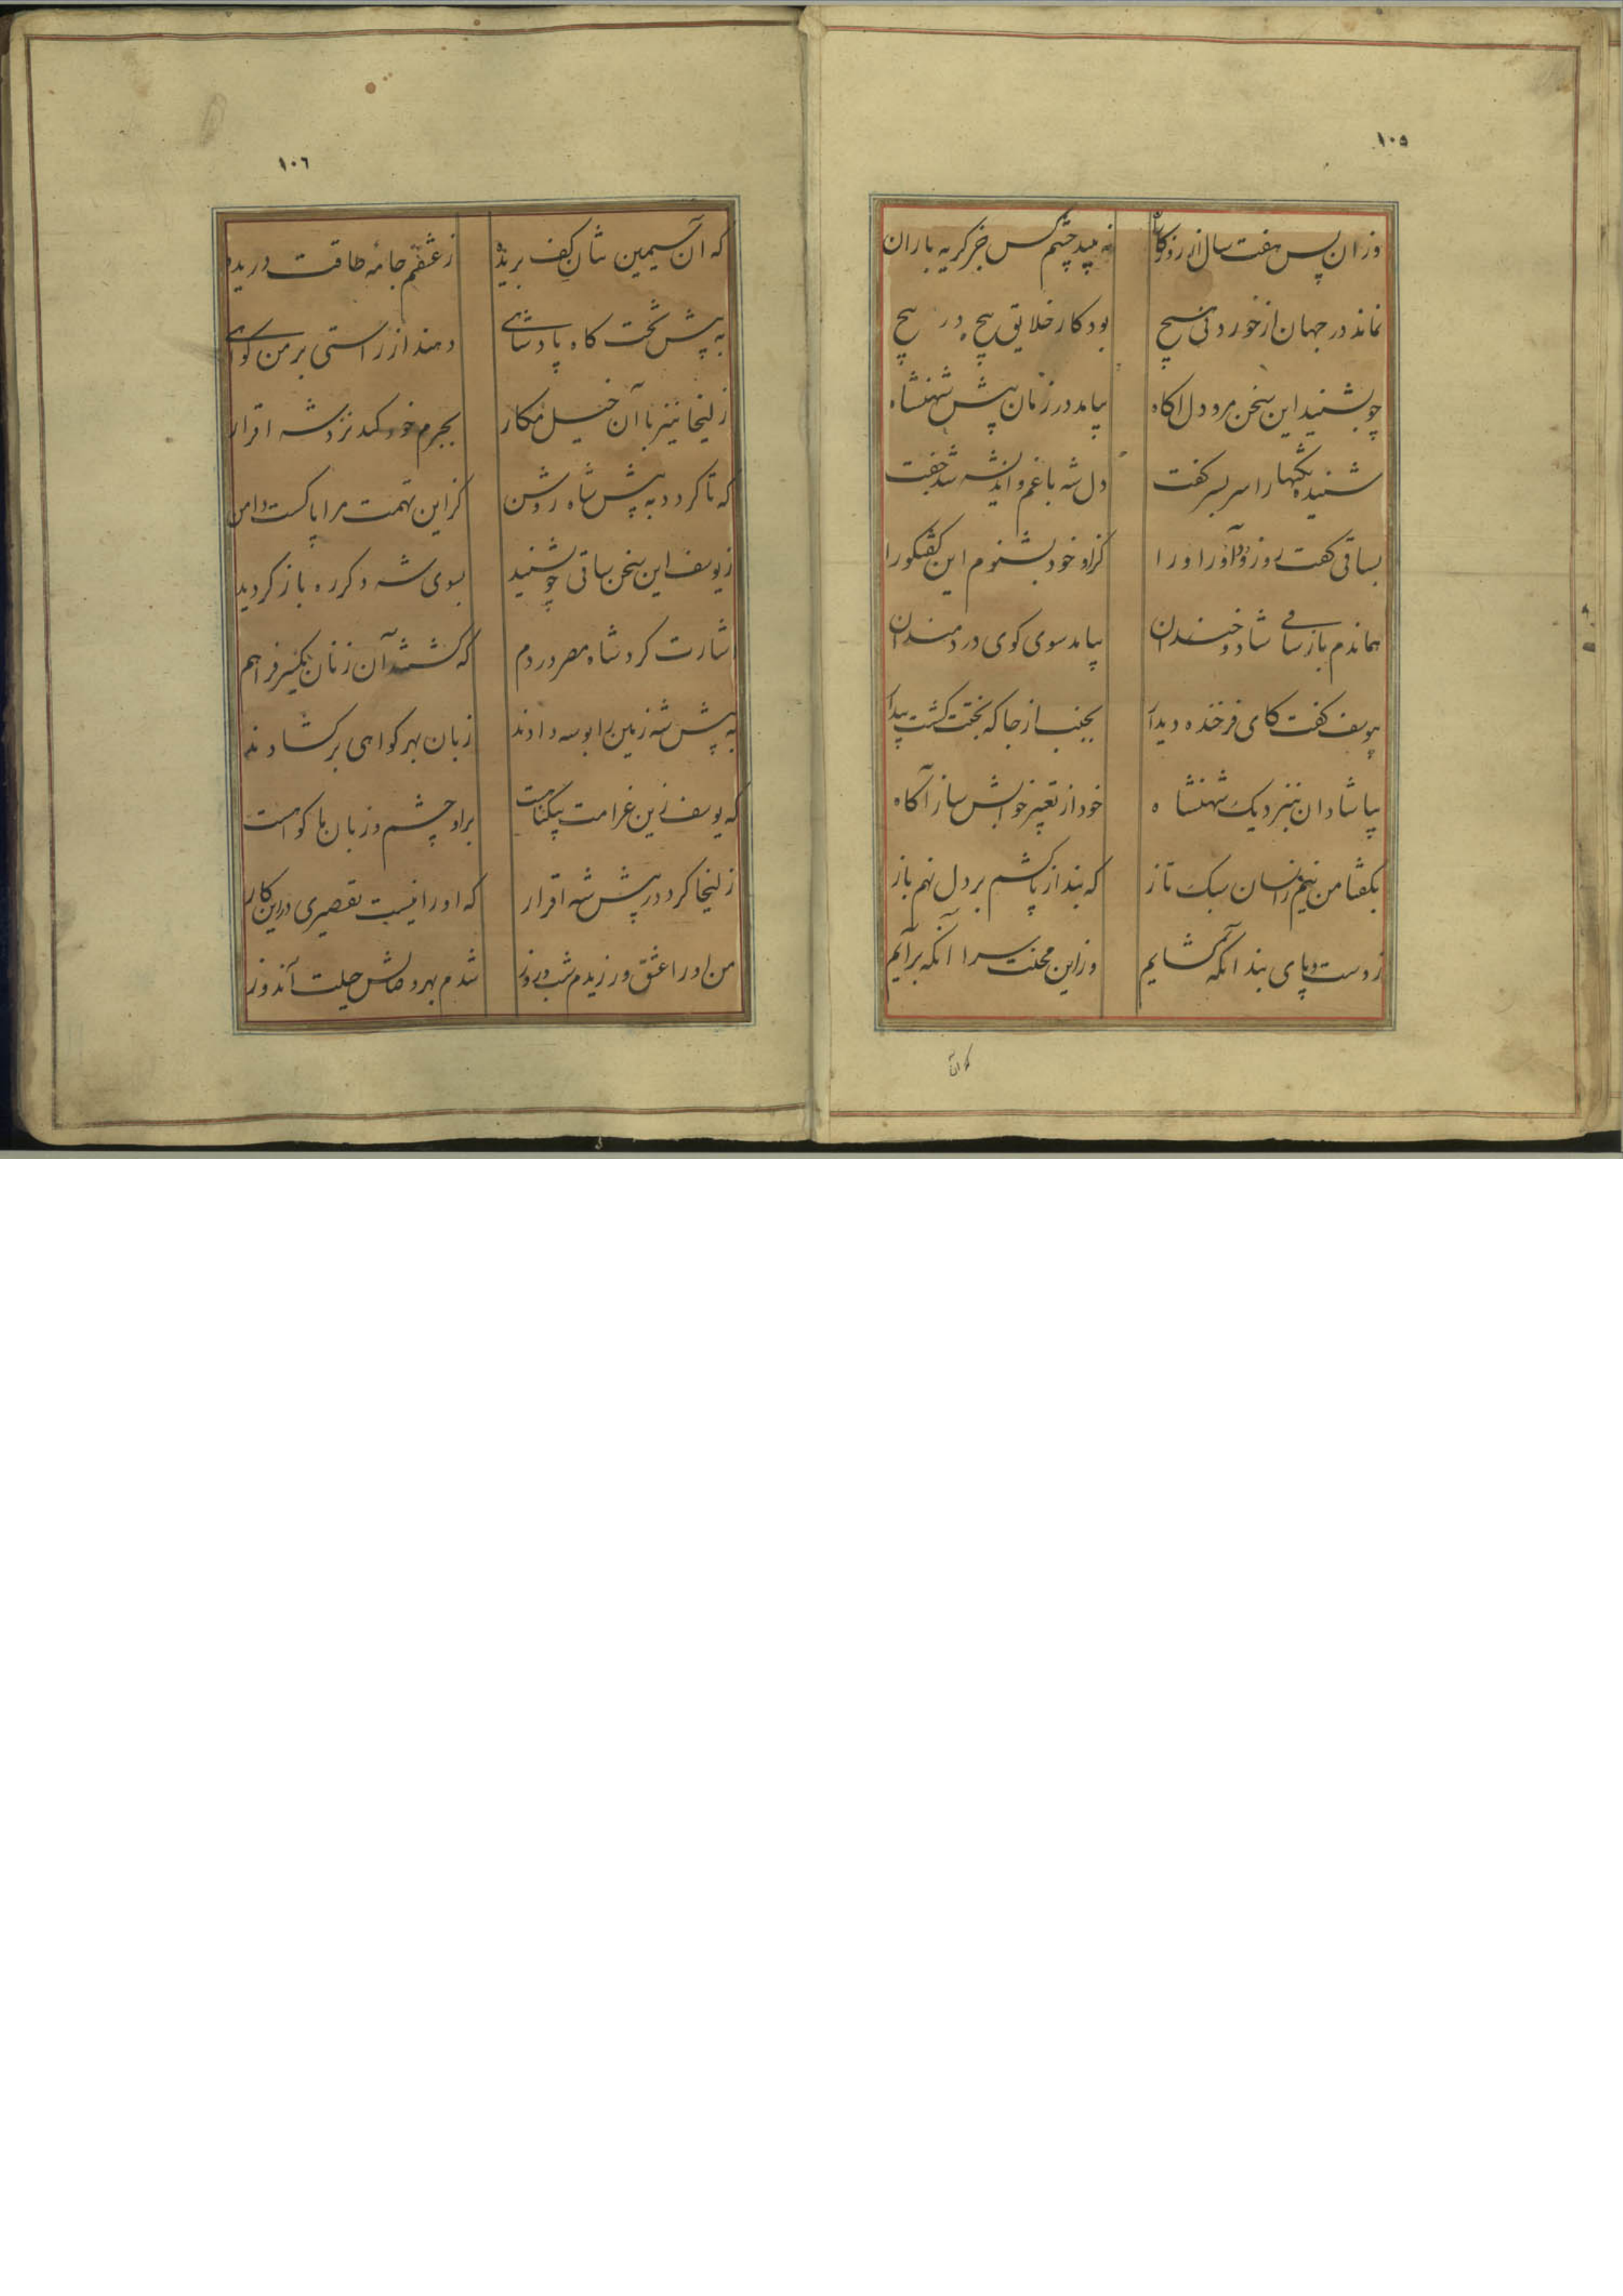 ١٠٥
وزان پس هفت سال از روزکاران نه بیند چشم کس جز کریه باران
نماند در جهان از خوردنی هیچ بود کار خلایق پیچ در پیچ
چو بشنید این سخن مرد دل اکاه بیامد در زمان پیش شهنشاه
شنیده نکتها را سر بسر کفت دل شه با غم و اندیشه شد جفت
بساقی کفت رو زود آور او را کزاو خود بشنوم این کفتکو را
هماندم باز ساقی شاد و خندان بیامد سوی کوی دردمندان
بیوسف کفت کای فرخنده دیدار بجنب از جا که بختت کشت بیدار
بیا شادان بنزدیک شهنشاه خود از تعبیر خوابش ساز آکاه
بکفتا من نیم زانسان سبک تاز که بند از پا کشم بر دل نهم باز
ز دست و پای بند آنکه کشایم وزاین محنت سرا آنکه برآیم
که آن
١٠٦
که آن سیمین تنان کف بریده ز عشقم جامه طاقت دریده
به پیش تخت کاه پادشاهی دهند از راستی بر من کواهی
زلیخا نیز با آن خیل مکار بجرم خود کند نزد شه اقرار
که تا کردد به پیش شاه روشن کز این تهمت مرا پاکست دامن
ز یوسف این سخن ساقی چو بشنید بسوی شه دکر ره باز کردید
اشارت کرد شاه مصر در دم که کشتند آن زنان یکسر فراهم
به پیش شه زمین را بوسه دادند زبان بهر کواهی برکشادند
که یوسف زین غرامت بیکناهست براو چشم و زبان ما کواهست
زلیخا کرد در پیش شه اقرار که او را نیست تقصیری دراین کار
من اورا عشق ورزیدم شب و روز شدم بهر وصالش حیلت آندوز